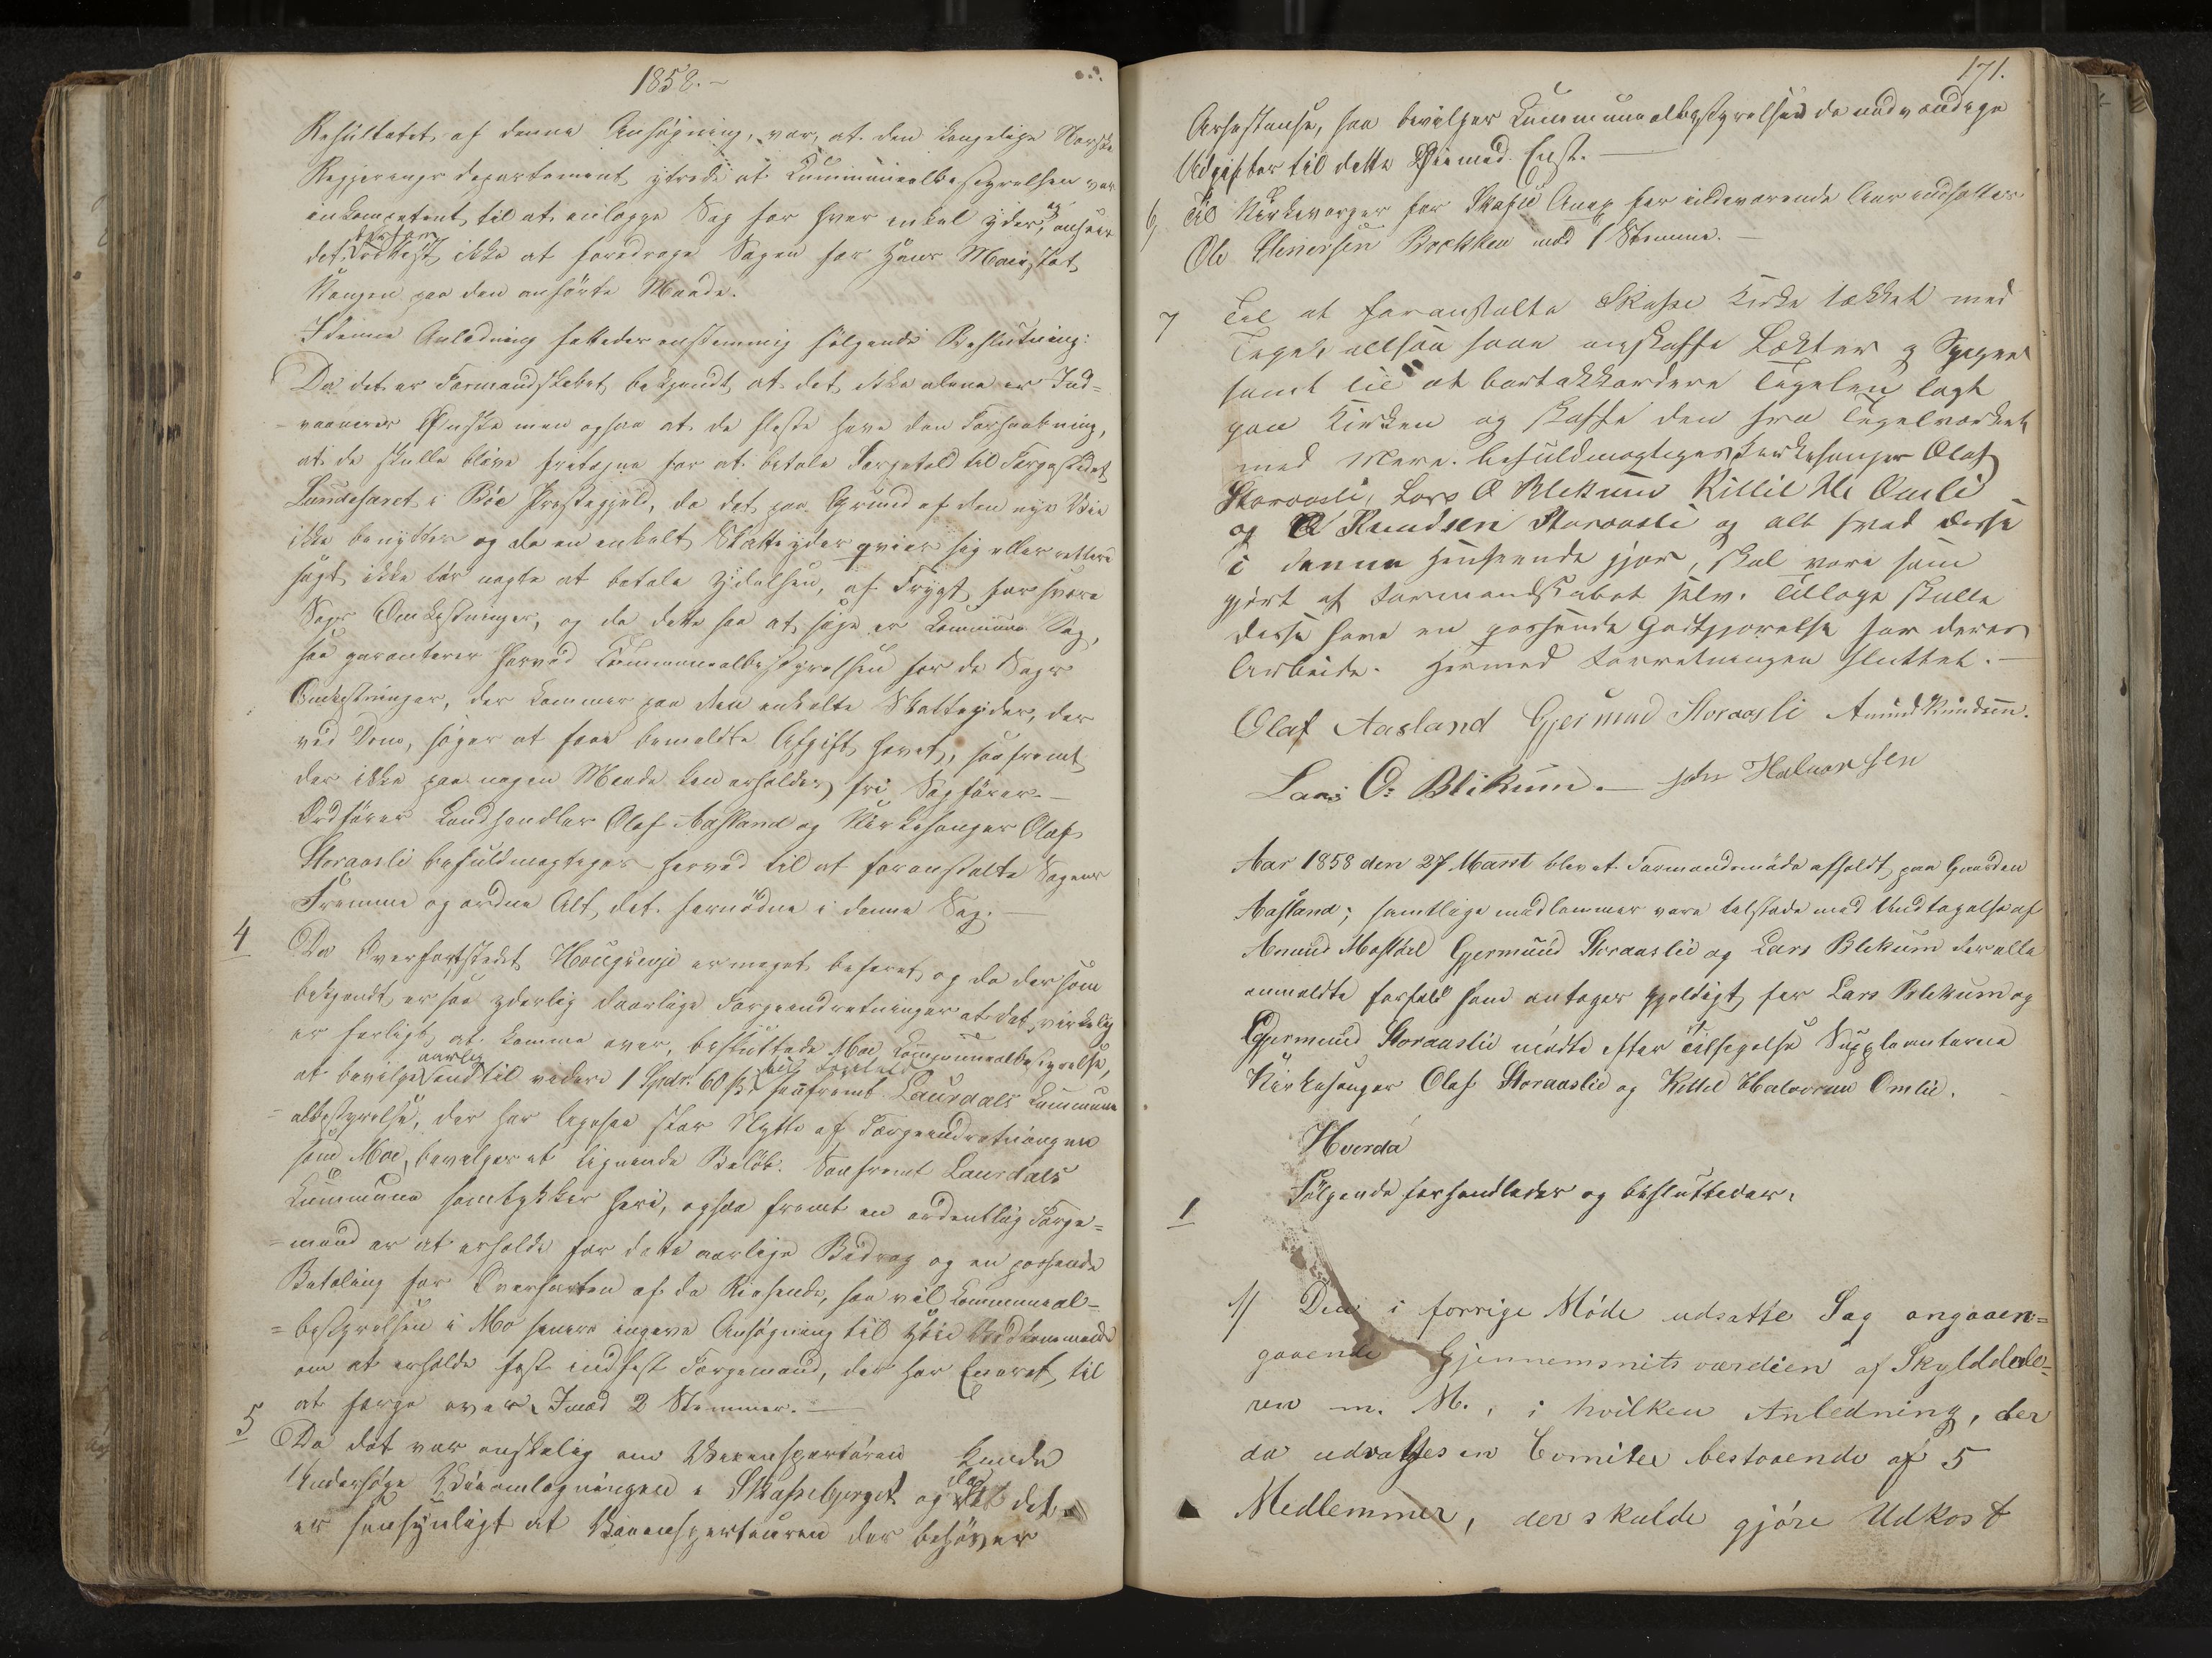 1858.-
Resultatet af denne Ansøgning, var, at den kongelige Norske
Regjerings departement ytrede at Kommunealbestyrelsen var
inkompetent til at anlægge Sag for hver enkel yder, og anseer
det derfor ikke at foredrage Sagen for Hans Majestæt
Kongen paa den anførte Maade.
I denne Anledning fattedes enstemmig følgende Beslutning:
Da det er Formandskabet bekjendt at det ikke alene er Ind-
-vaaneres Ønske men ogsaa at de fleste have den Forhaabning,
at de skulle blive fritagne for at betale Færgetold til Færgestedet
Sundefaret i Böe Præstegjeld, da det paa Grund af den nye Vei
ikke benyttes og da en enkelt Skatteyder qvier sig eller rettere
sagt ikke tör nægte at betale Ydelsen, af Frygt for svære
Sags Omkostninger, og da dette saa at sige er Kommune Sag,
saa garanterer herved Kommunealbestyrelsen for de Sags
Omkostninger, der kommer paa den enkelte Skatteyder, der
ved Dom, søges at faae bemeldte Afgift hævet, saafremt
der ikke paa nogen Maade kan erholdes fri Sagfører.-
Ordfører Landhandler Olaf Aasland og Kirkesanger Olaf
Storaasli befuldmægtiges herved til at foranstalte Sagens
Fremme og ordne Alt det fornødne i denne Sag.-
4 Da Overfartstedet Hougsenje er meget befaret og da der som
bekjendt er saa yderlig daarlige Færgeindretninger at det virkelig
er farligt at komme over, besluttede Moe Kommunealbestyrelse,
at bevilge aarlig indtil videre 1 Spdr. 60 s saafremt Laurdals Kommune
-albestyrelse, der har ligesaa stor Nytte af Færgeindretningen
som Moe, bevilger et lignende Beløb. Saafremt Laurdals
Kommune samtykker heri, ogsaa fremt en ordentlig Færge-
-mand er at erholde for dette aarlige Bidrag og en passende
Betaling for Overfarten af de Reisende, saa vil Kommuneal-
-bestyrelsen i Mo senere ingive Ansøgning til Høie Vedkommende
om at erholde fast indfæst Færgemand, der har Eneret til
at færge over. Imod 2 Stemmer.-
5 Da det var ønskelig om Veiinspektøren kunde
Undersøge Veiomlægningen i Skafsebjerget og da det
er sansynligt at Veiinspekteuren der behøver
171.
Assistanse, saa bevilger Kommunealbestyrelsen de nødvendige
Udgifter til dette Øiemed. Enst.-
6 Til Kirkeværger for Skafse Anex for indeværende Aar ansattes
Ole Evensen Bækken mod 1 Stemme.-
7 Til at foranstalte Skafse Kirke tækket med
Tegel, altsaa faae anskaffe Lækter og Spiger
samt til at bortakkordere Tegelen lagt
paa Kirken og skaffe den fra Tegelværket
med Mere. befuldmægtiges Kirkesanger Olaf
Storaasli, Lars O Blekum Kittil H. Omli
og A Knudsen Storaasli og alt hvad disse
i denne Henseende gjør, skal være som
gjort af Formandskabet selv. Tillige skulle
disse have en passende Godtgjørelse for deres
Arbeide. Hermed Forretningen sluttet.-
Olaf Aasland Gjermund Storaasli Amund Knudsen.
Lars O. Blikum.- John Halvorsen
Aar 1858 den 27 Marst blev et Formandsmøde afholdt paa Gaarden
Aasland; samtlige medlemmer vare tilstede med Undtagelse af
Amund Mostøel Gjermund Storaaslie og Lars Blekum der alle
anmeldte forfald som antages gyldigt for Lars Blekum og
Gjermund Storaaslie mødte efter Tilsigelse Suppleanterne
Kirkesanger Olaf Storaaslie og Kittel Halvorsen Omlie.
Hvorda
1 Følgende forhandledes og besluttedes:
1/ Den i forrige Møde udsatte Sag angaaen=
gaaende Gjennemsnits værdien af Skylddale-
ren m. M., i hvilken Anledning, der
da udvalges en Comitee bestaaende af 5
Medlemmer, der skulde gjöre Udkast